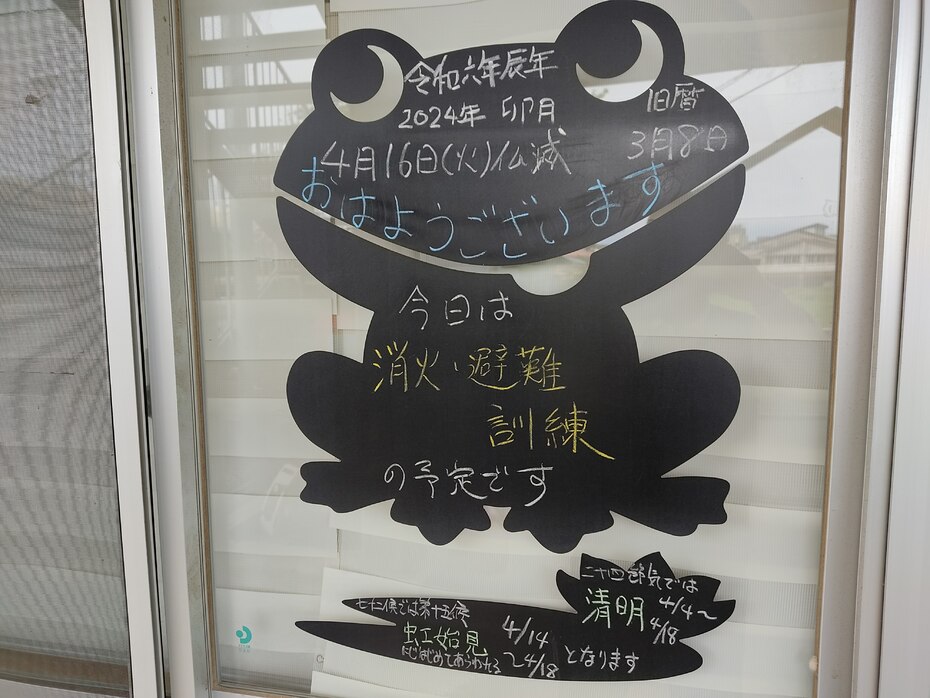 令和六年辰年
2024年 卯月
旧暦
4月16日(火)仏滅
3月8日
おはようございます
今日は
消火・避難
訓練
の予定です
二十四節気では
清明 4/4〜
4/18
七十二候では第十五候
虹始見 4/14
にじはじめてあらわれる 〜4/18 となります